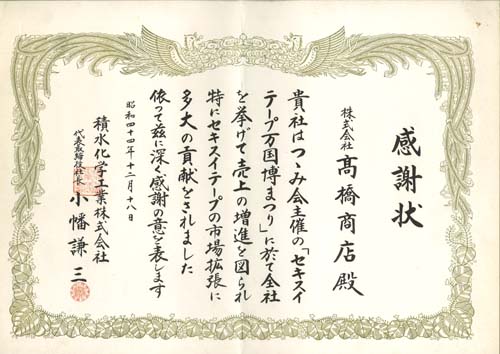 感謝状
株式会社 髙橋商店殿
貴社はつゝみ会主催の「セキスイ
テープ万国博まつり」に於て全社
を挙げて売上の増進を図られ
特にセキスイテープの市場拡張に
多大の貢献をされました
依って茲に深く感謝の意を表します
昭和四十四年十二月十八日
積水化学工業株式会社
代表取締役社長 小幡謙三